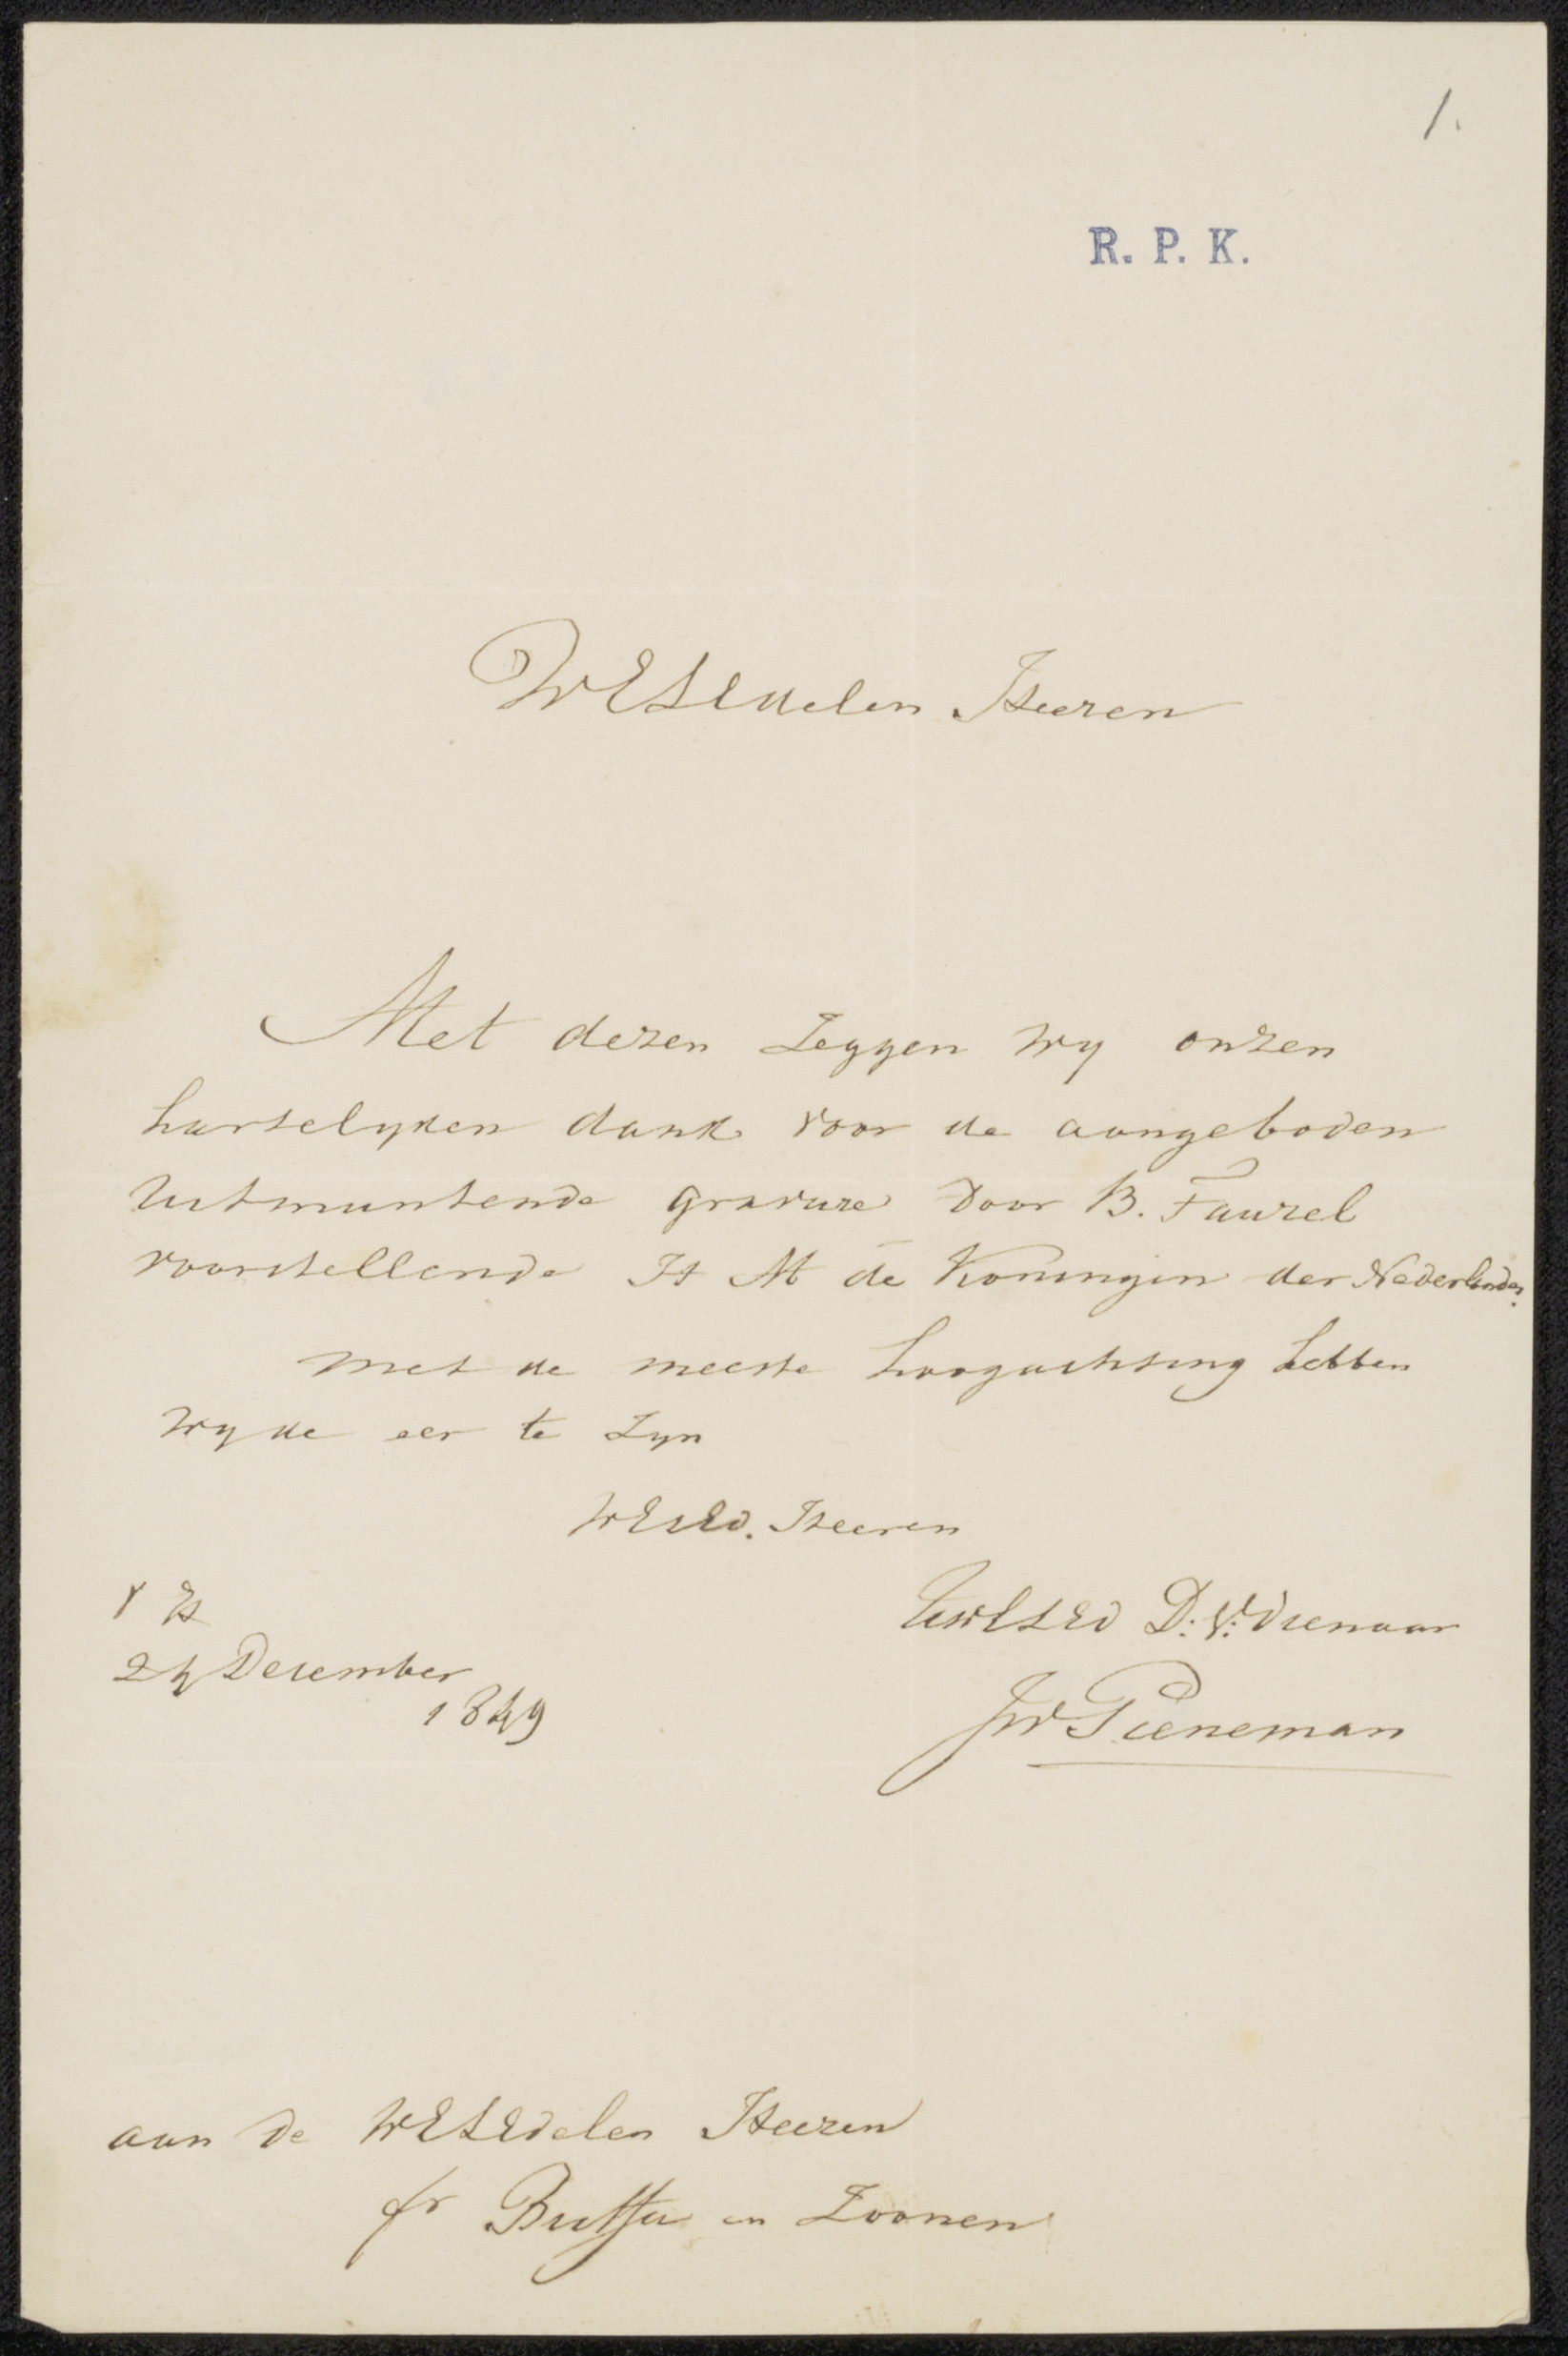 1.
R. P. K.
WElEdelen Heeren
Met dezen Zeggen Wy onzen
hartelyken dank voor de aangeboden
Uitmuntende gravure door B. Tauzel
voorstellende H M de Koningin der Nederlanden.
met de meeste hoogachting hebben
Wy de eer te Zyn
WElEd. Heeren
UWElEd D: V: dienaar
24 December
1849
JW Pieneman
aan de WElEdelen Heeren
fr Buffa en Zoonen